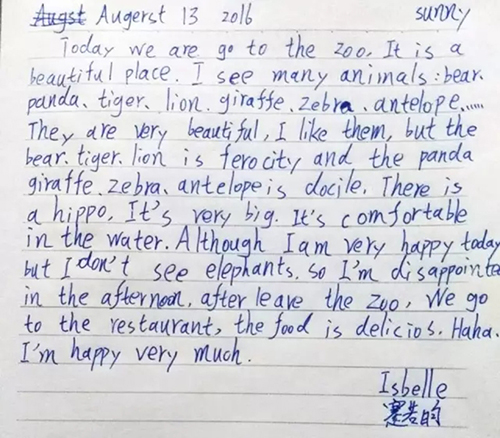 Augst Augerst 13 2016 sunny
Today we are go to the zoo. It is a
beautiful place. I see many animals: bear.
panda、tiger、lion. giraffe、zebra、antelope......
They are very beautiful, I like them, but the
bear. tiger. lion is ferocity and the panda
giraffe. zebra. antelope is docile. There is
a hippo. It's very big. It's comfortable
in the water. Although I am very happy today
but I don't see elephants. so I'm disappointe
in the afternoon, after leave the zoo, We go
to the restaurant, the food is delicios. Haha.
I'm happy very much.
Isbelle